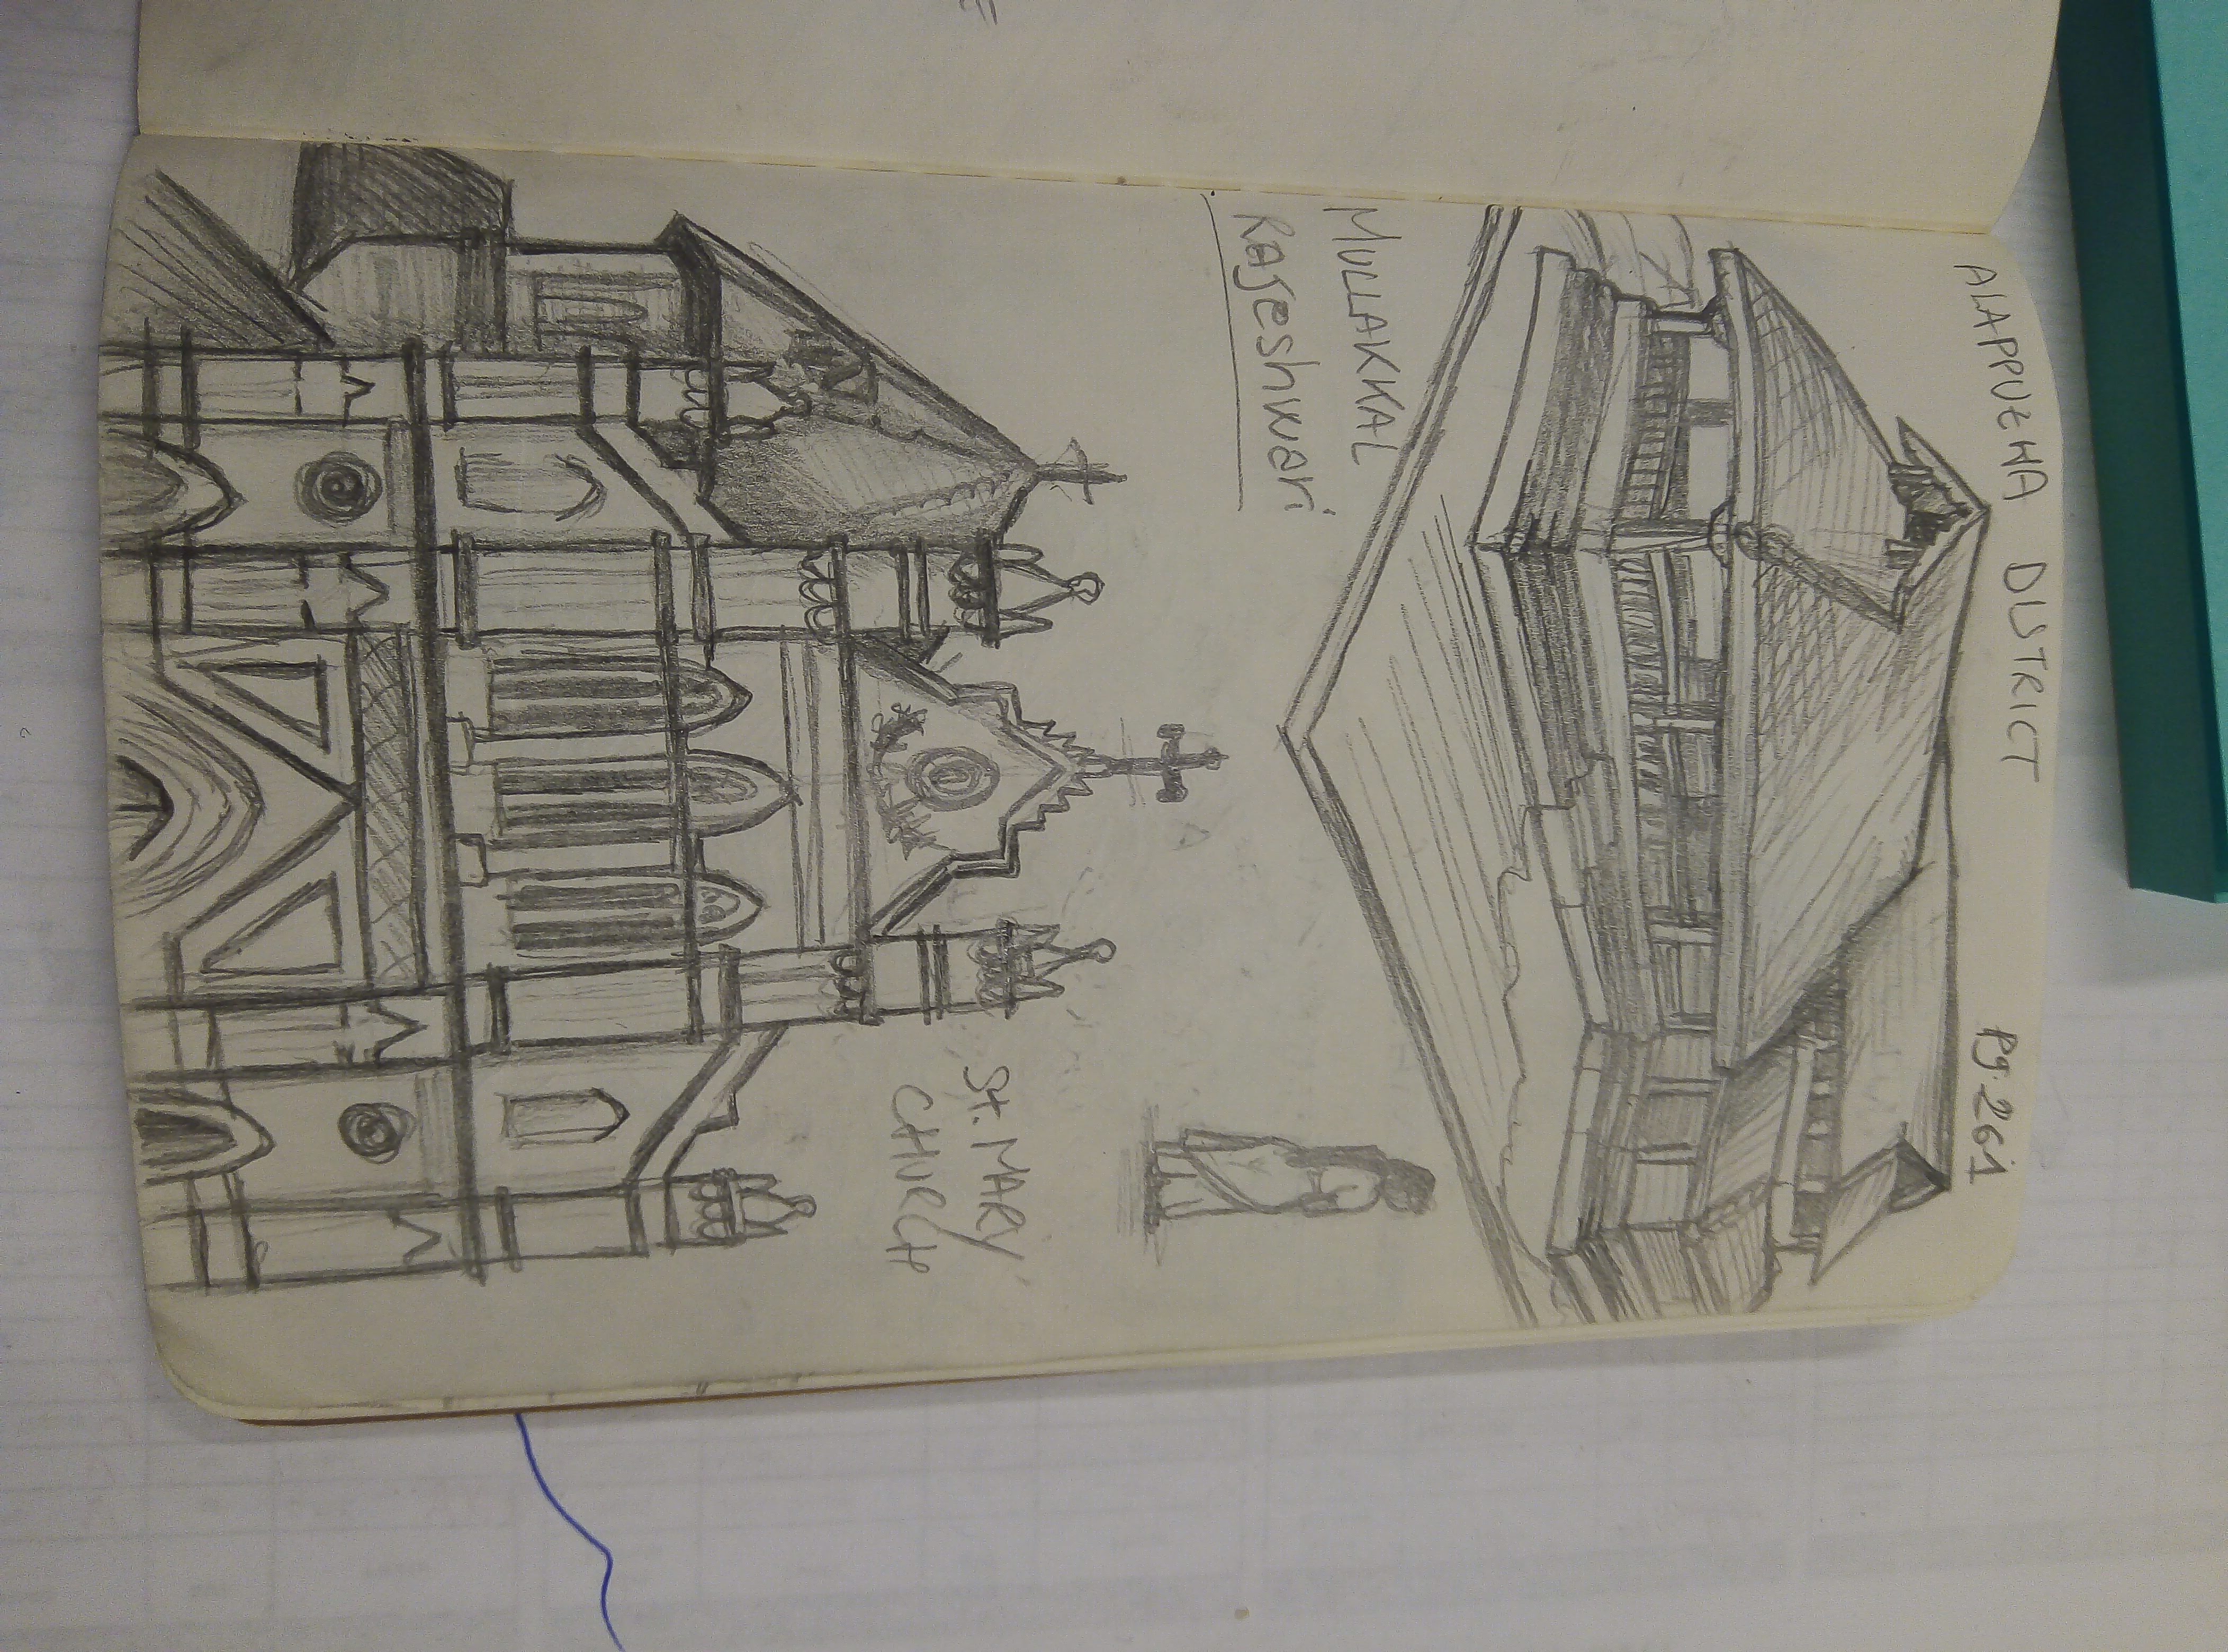 ALAPPUZHA DISTRICT Pg.261
MULLAKKAL
Rajeshwari
St. MARY
CHURCH